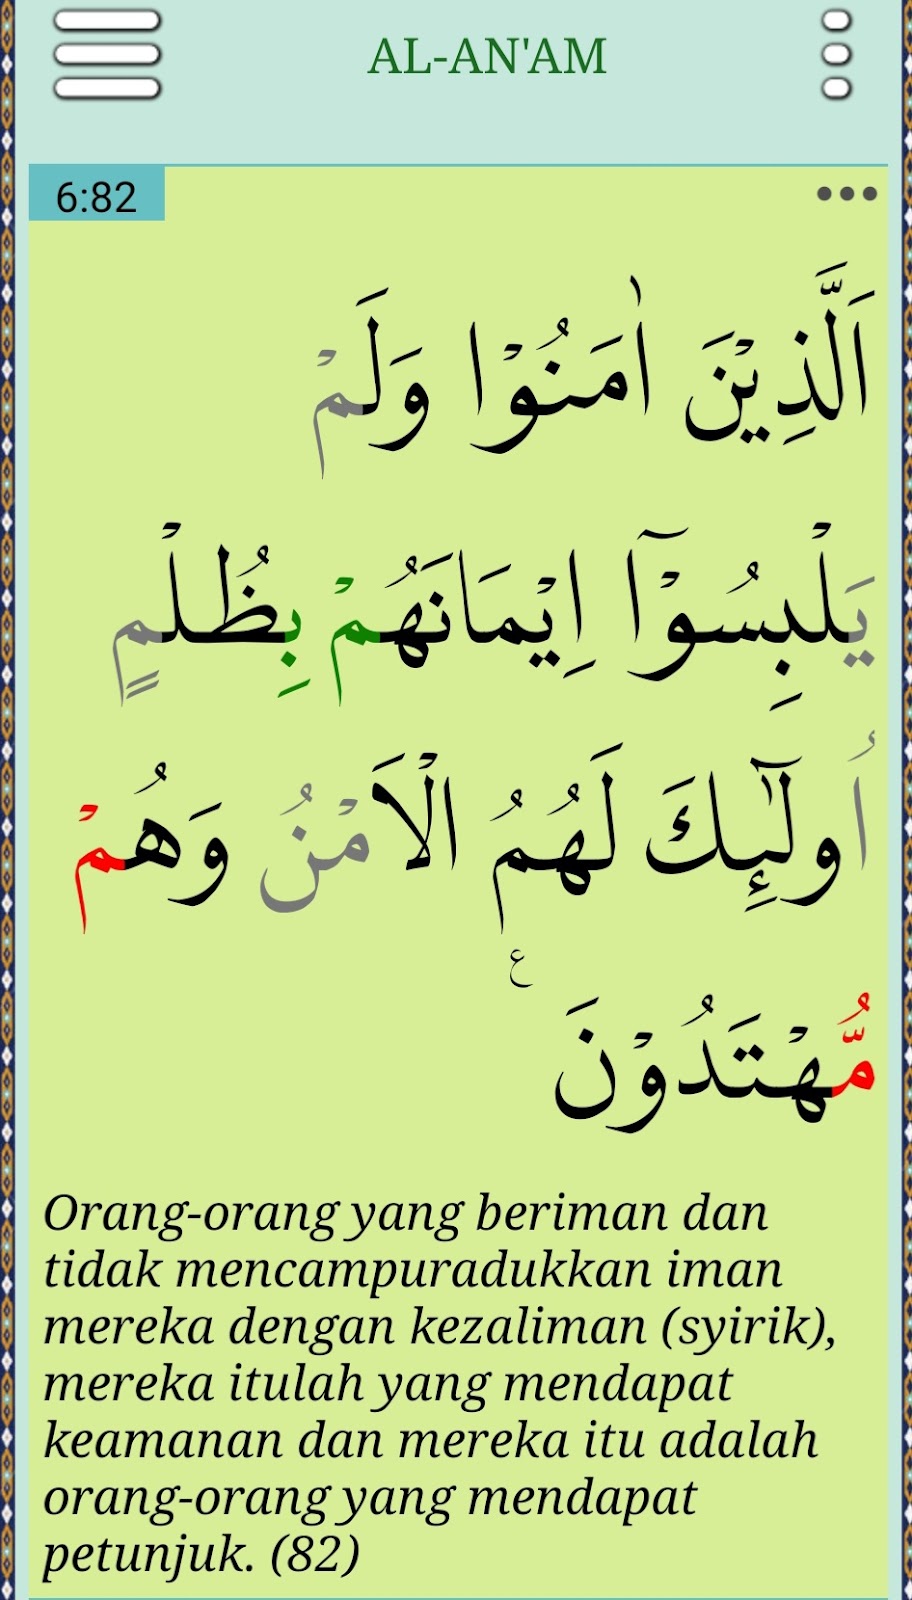 AL-AN'AM
6:82
اَلَّذِيْنَ اٰمَنُوْا وَلَمْ
يَلْبِسُوْٓا اِيْمَانَهُمْ بِظُلْمٍ
اُولٰۤىِٕكَ لَهُمُ الْاَمْنُ وَهُمْ
مُّهْتَدُوْنَ ࣖ
Orang-orang yang beriman dan
tidak mencampuradukkan iman
mereka dengan kezaliman (syirik),
mereka itulah yang mendapat
keamanan dan mereka itu adalah
orang-orang yang mendapat
petunjuk. (82)